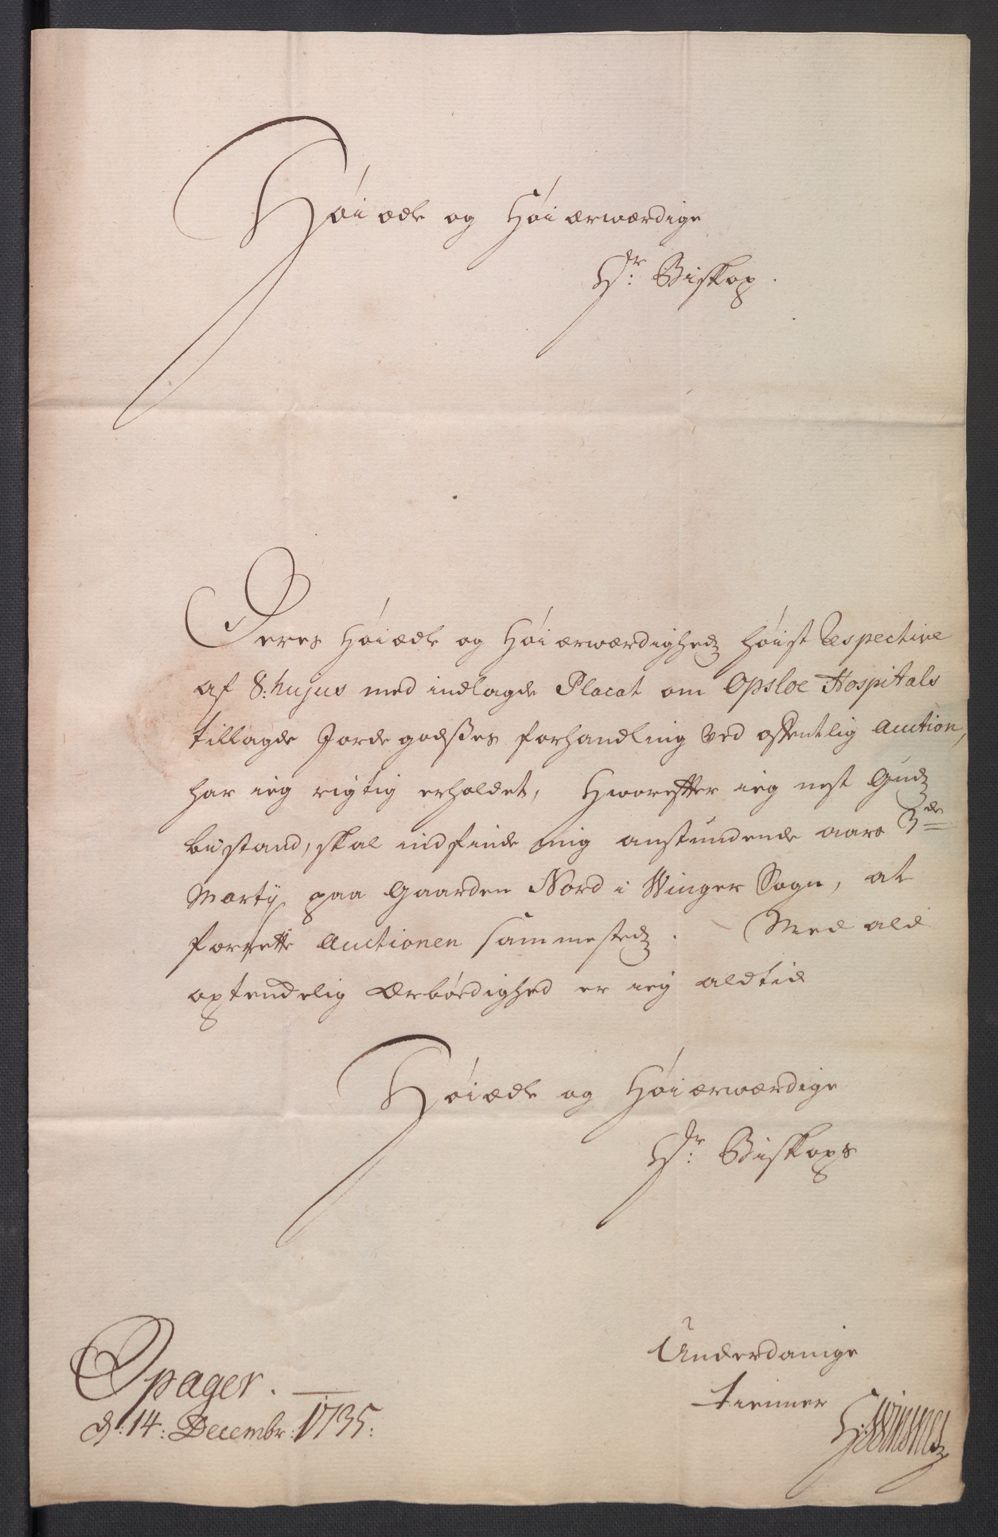 Høiædle og Høiærwærdige
Hr: Biskop.
Deres Høiædle og Høiærwærdigheds høist Respective
af 8: hujus med indlagde Placat om Opsloe Hospitals
tillagde Jordegodses forhandling ved offentlig Auction,
har ieg rigtig erholdet, Hworeffter ieg nest Guds
bistand, skal indfinde mig anstundende aars 3de
Martij paa Gaarden Nord i Winger Sogn, at
forrette Auctionen sammesteds. Med ald
optendelig Ærbødighed er ieg aldtid
Høiædle og Høiærwærdige
Hr: Biskops
Underdanige
tienner
Opager.
d: 14: Decembr: 1735: